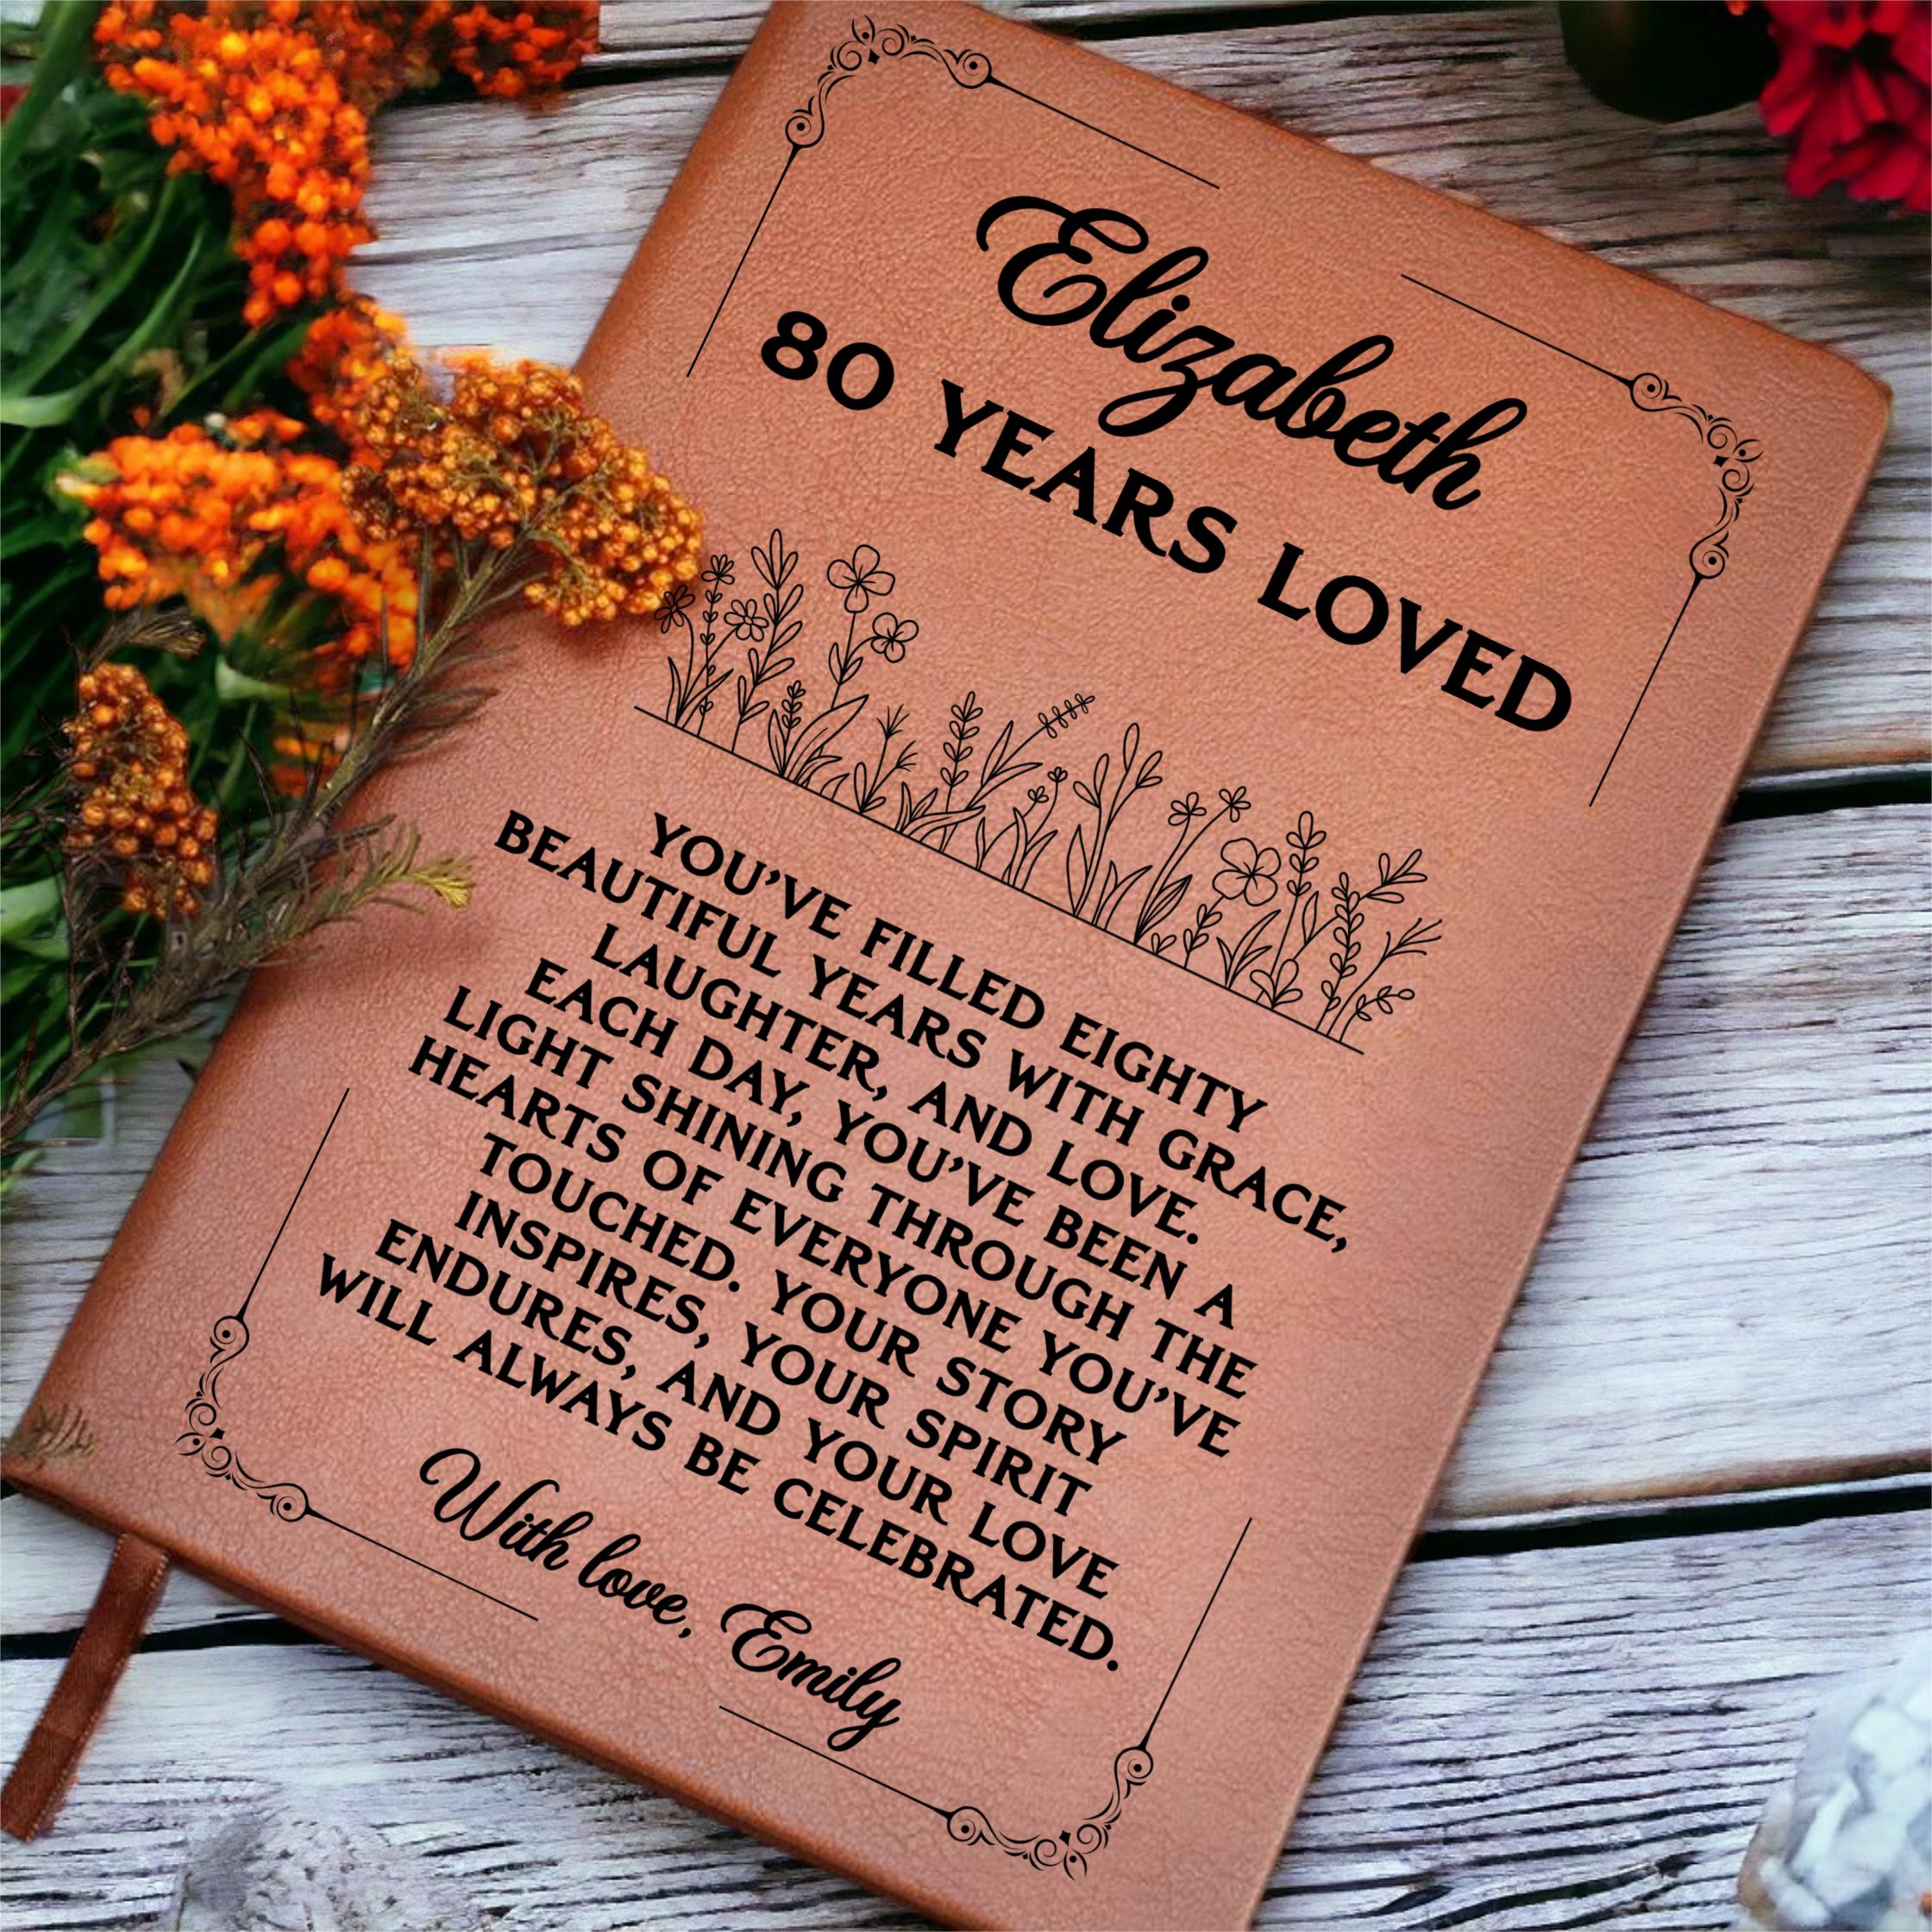 Elizabeth
80 YEARS LOVED
YOU’VE FILLED EIGHTY
BEAUTIFUL YEARS WITH GRACE,
LAUGHTER, AND LOVE.
EACH DAY, YOU’VE BEEN A
LIGHT SHINING THROUGH THE
HEARTS OF EVERYONE YOU’VE
TOUCHED. YOUR STORY
INSPIRES, YOUR SPIRIT
ENDURES, AND YOUR LOVE
WILL ALWAYS BE CELEBRATED.
With love, Emily